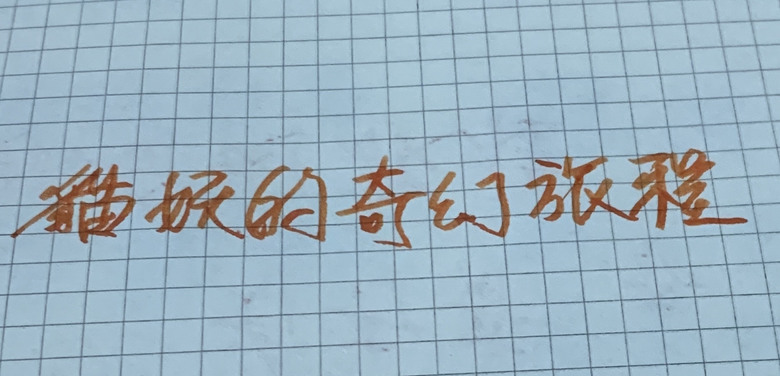 貓妖的奇幻旅程